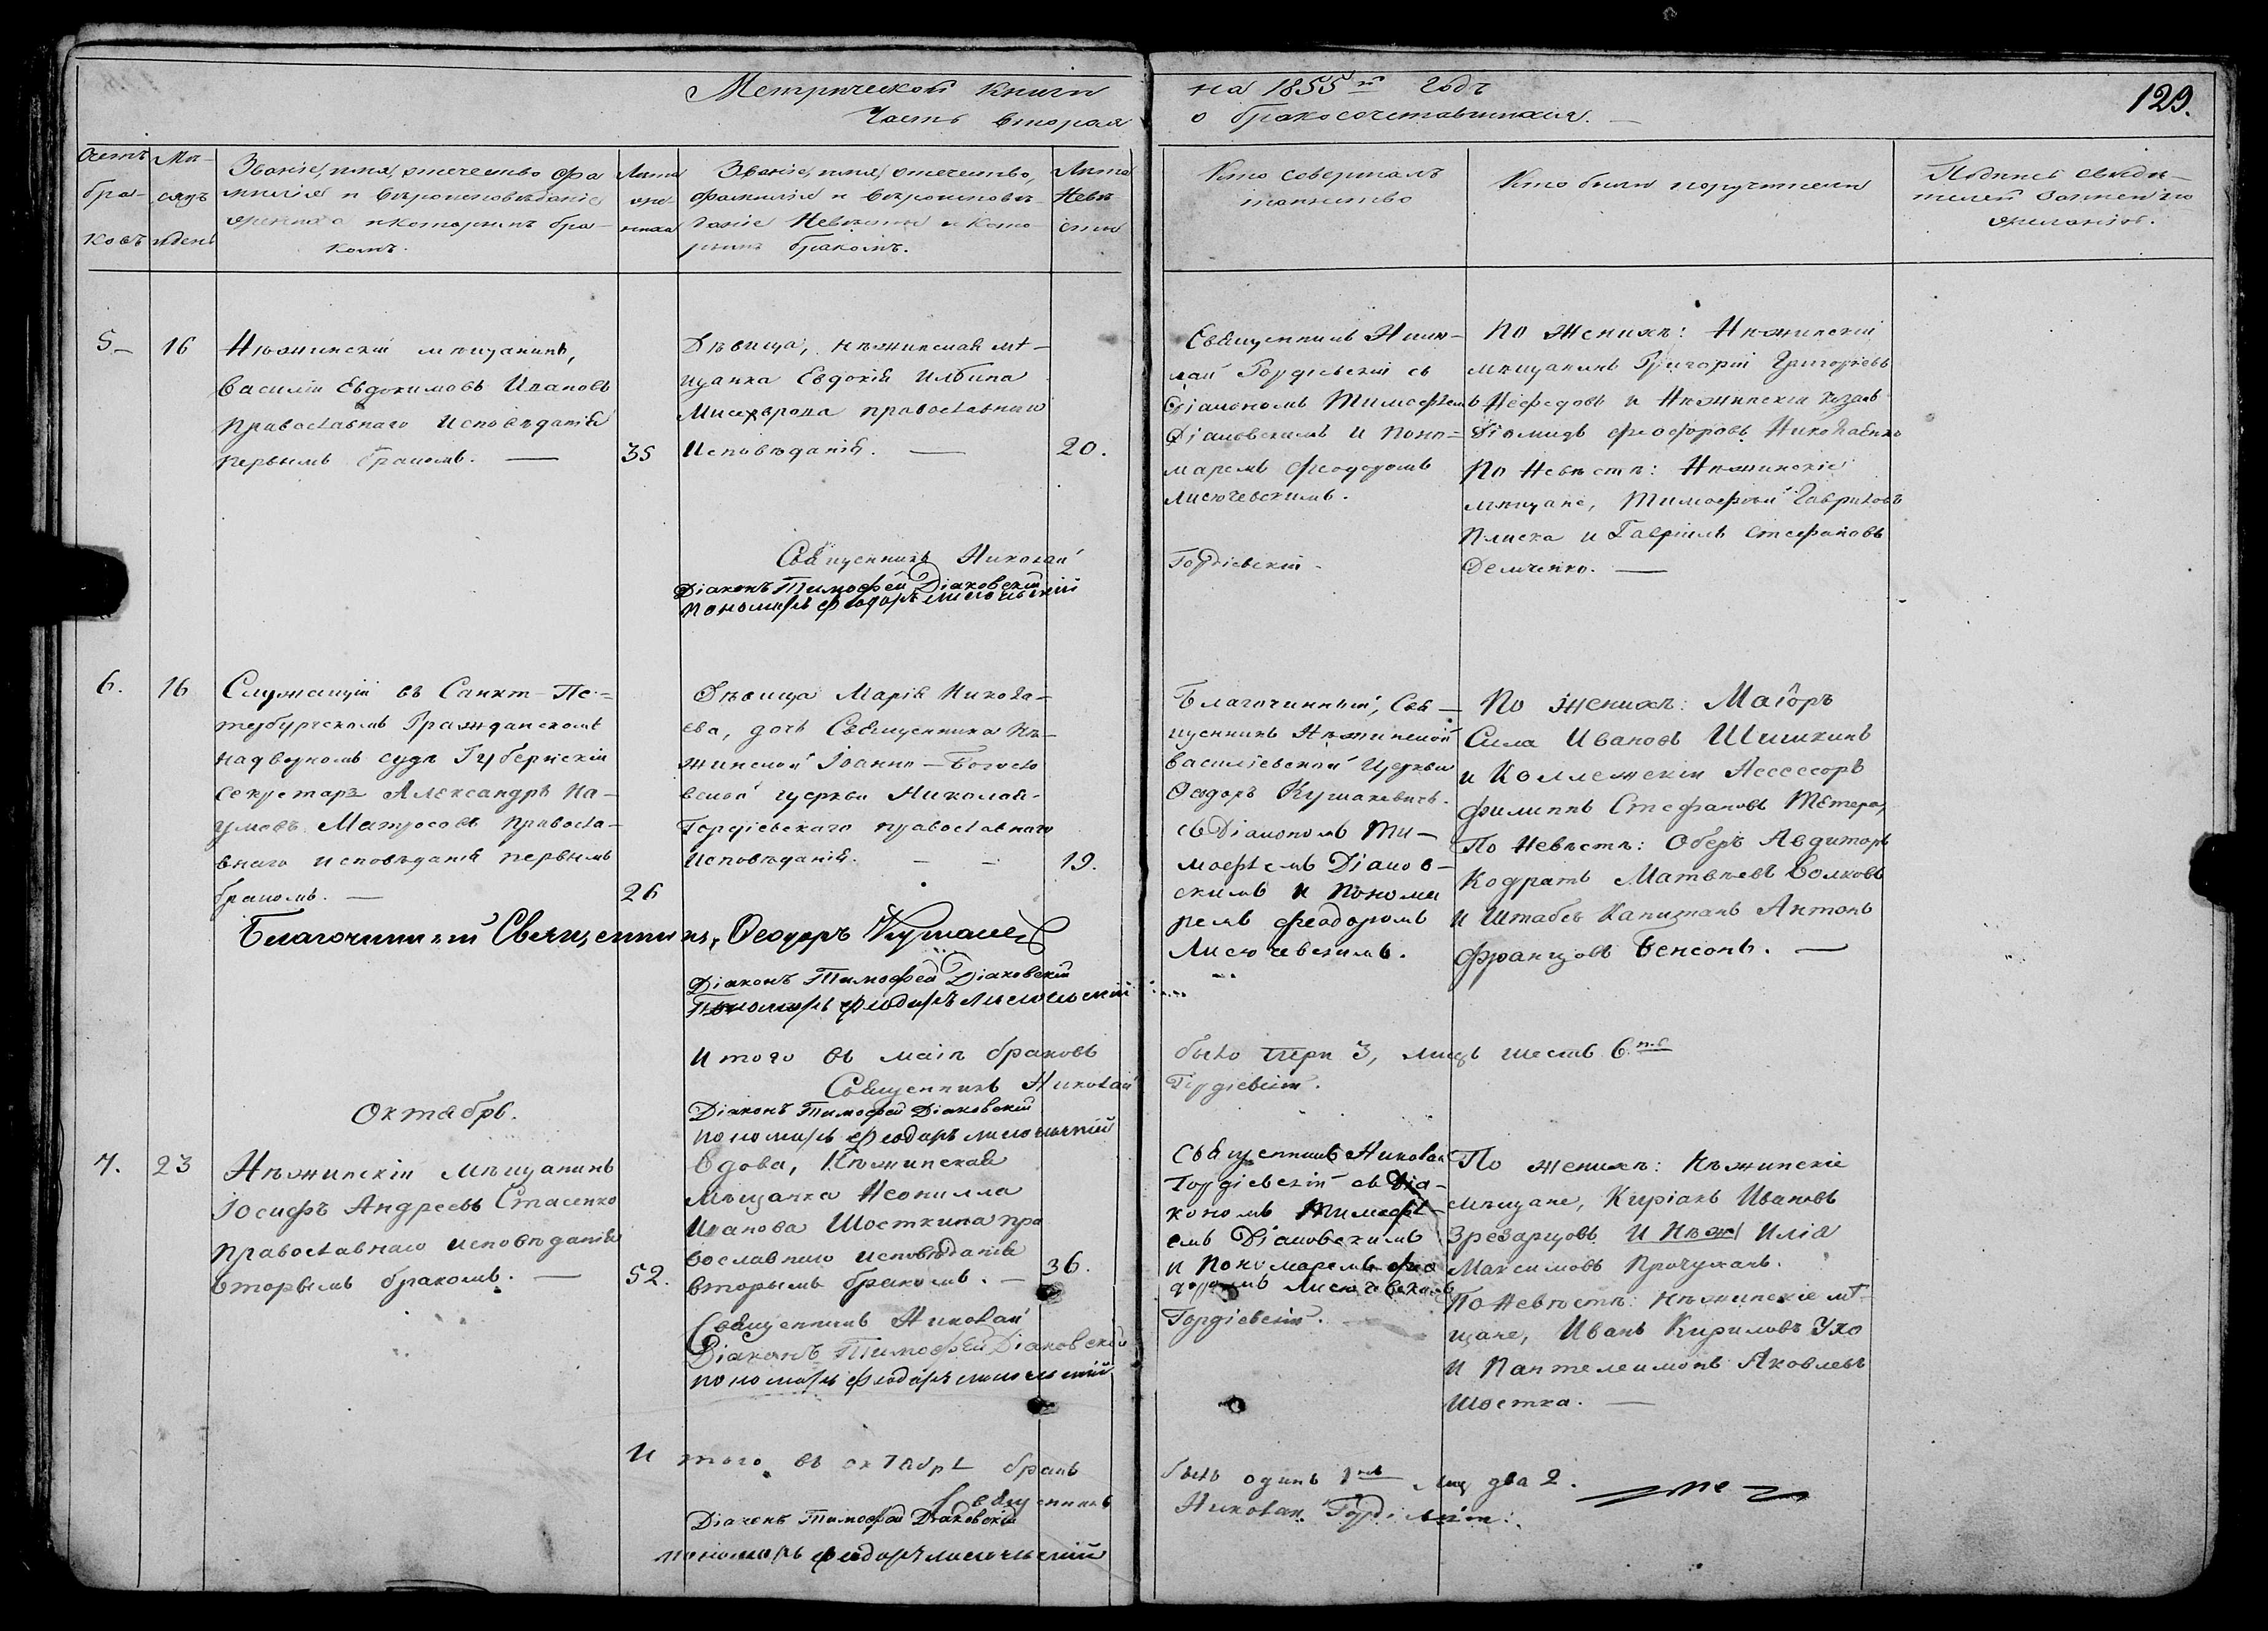 Метрической книги
Часть вторая
на 1855й Годъ
о бракосочетавшихся.
129.
Счетъ
бра-
ковъ
Мѣ-
сяцъ
и день
Званіе, имя, отечество фа
милія и вѣроисповѣданіе
жениха и которымъ бра-
комъ.
Лѣта
же-
ниха
Званіе, имя, отечество,
фамилія и вѣроисповѣ-
даніе Невѣсты и кото-
рымъ бракомъ.
Лѣта
Невѣ-
сты
Кто совершалъ
таинство
Кто были поручители
Подпись свидѣ-
телей записи по
желанію.
5
16
Нѣжинскій мѣщанинъ,
Василій Евдокимовъ Ивановъ
Православнаго Исповѣданія
первымъ бракомъ.
35
Дѣвица, нѣжинская мѣ-
щанка Евдокія Ильина
православнаго
Исповѣданія.
20.
Священникъ Нико-
лай Гордіевскій съ
Діакономъ Тимофѣемъ
Діаковскимъ и Поно-
маремъ Феодоромъ
Лисючевскимъ.
По Женихѣ: Нѣжинскій
мѣщанинъ Григорій Григорьевъ
Нефедовъ и Нѣжинскій козакъ
Діомидъ Феофоровъ
По Невѣстѣ: Нѣжинскіе
мѣщане, Тимофѣй Гавриловъ
Плиска и Гавріилъ Стефановъ
Демченко.
Священникъ Николай
Гордіевскій.
Діаконъ Тимофей Діаковскій
Пономарь Феодоръ Лисючевскій
6.
16
Служащій въ Санкт-Пе-
тербургскомъ Гражданскомъ
надворномъ судѣ Губернскій
Секретарь Александръ На-
умовъ Матросовъ Правосла-
внаго исповѣданія первымъ
бракомъ.
26
Дѣвица Марія Никола-
ева, дочь Священника Нѣ-
жинской Іоанно-Богосло
вской церкви Николая
Гордіевскаго православнаго
Исповѣданія.
19.
Благочинный, Свя-
щенникъ Нѣжинской
Васильевской Церкви
Феодоръ
съ Діакономъ Ти-
мофѣемъ Діаков-
скимъ и Понома
ремъ Феодоромъ
Лисючевскимъ.
По Женихѣ: Маіоръ
Сила Ивановъ Шишкинъ
и Коллежскій Ассессоръ
Филиппъ Стефановъ
По Невѣстѣ: Оберъ Авдиторъ
Кодратъ Матвѣевъ Волковъ
и Штабсъ Капитанъ Антонъ
Францовъ Бенсонъ.
Благочинный Священникъ, Феодоръ
Діаконъ Тимофей Діаковскій
Пономарь Феодоръ Лисючевскій
Итого въ маіѣ браковъ
было три 3, лицъ шесть 6.
Священникъ Николай
Гордіевскій.
Діаконъ Тимофей Діаковскій
Пономарь Феодоръ Лисючевскій
Октябрь.
7.
23
Нѣжинскій Мѣщанинъ
Іосифъ Андреевъ Стасенко
Православнаго исповѣданія
вторымъ бракомъ.
52.
Вдова, Нѣжинская
Мѣщанка Неонилла
Иванова Шосткина пра
вославнаго исповѣданія
вторымъ бракомъ.
36.
Священникъ Николай
Гордіевскій съ Діа-
кономъ Тимофѣ-
емъ Діаковскимъ
и Пономаремъ Фео
доромъ Лисючевскимъ
По женихѣ: Нѣжинскіе
мѣщане, Киріакъ Ивановъ
и Нѣж Илія
Максимовъ
По Невѣстѣ: Нѣжинскіе мѣ-
щане, Иванъ Кириловъ Ухо
и Пантелеимонъ Яковлевъ
Шостка.
Священникъ Николай
Гордіевскій.
Діаконъ Тимофей Діаковскій
Пономарь Феодоръ Лисючевскій
Итого въ октябрѣ бракъ
былъ одинъ 1 лиц два 2.
Священникъ
Николай Гордіевскій.
Діаконъ Тимофей Діаковскій
Пономарь Феодоръ Лисючевскій